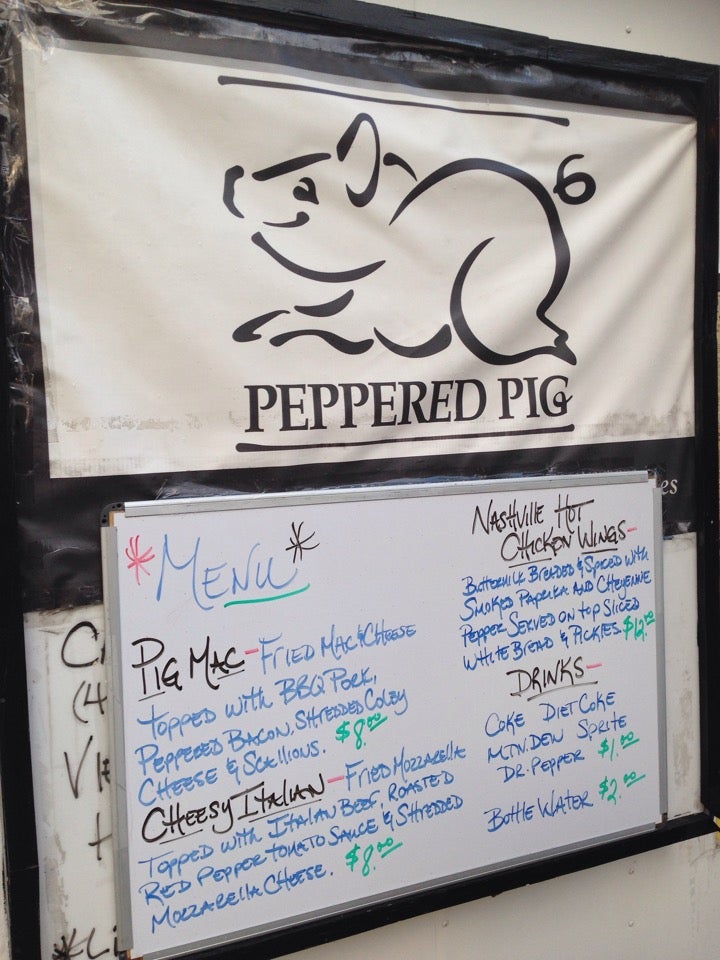 PEPPERED PIG
es
*MENU*
PIG MAC - FRIED MAC & CHEESE
TOPPED WITH BBQ PORK,
PEPPERED BACON, SHREDDED COLBY
CHEESE & SCALLIOUS. $8.00
CHEESY ITALIAN - FRIED MOZZARELLA
TOPPED WITH ITALIAN BEEF, ROASTED
RED PEPPER TOMATO SAUCE & SHREDDED
MOZZARELLA CHEESE. $8.00
NASHVILLE HOT
CHICKEN WINGS -
BUTTERMILK BREADED & SPICED WITH
SMOKED PAPRIKA AND CHEYENNE
PEPPER SERVED ON TOP SLICED
WHITE BREAD & PICKLES. $12.00
DRINKS -
COKE DIET COKE
MTN. DEW SPRITE
DR. PEPPER $1.00
BOTTLE WATER $2.00
(4
*Li